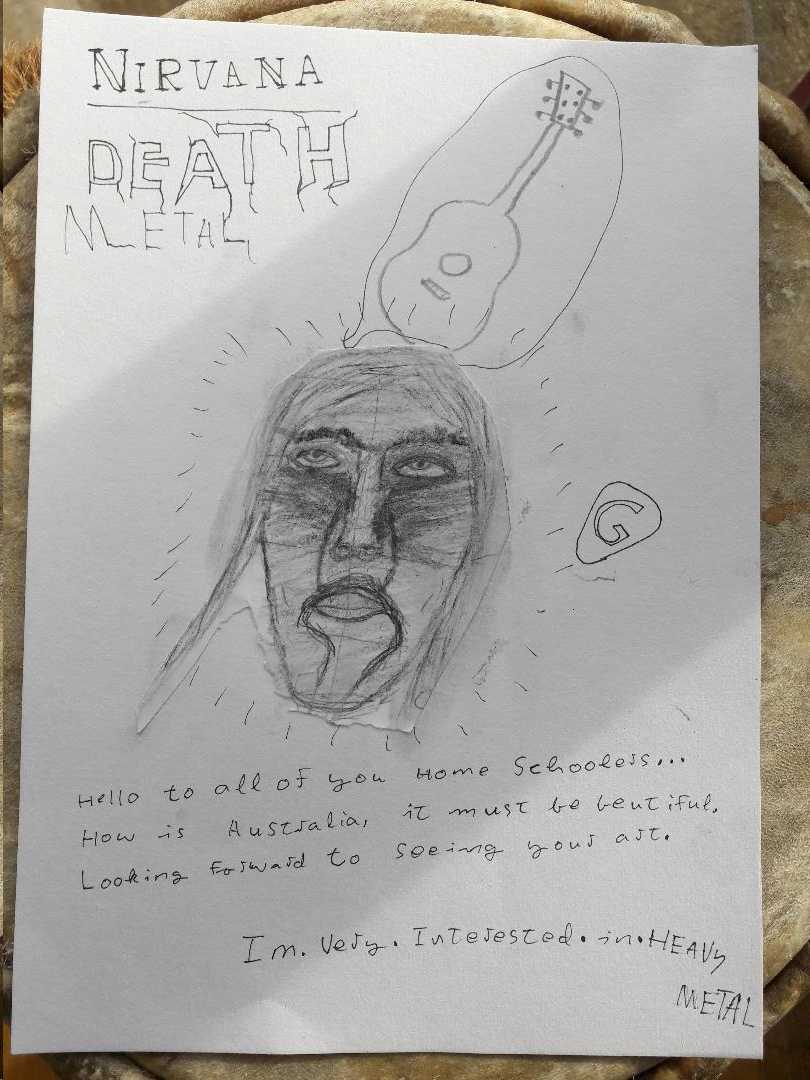 NIRVANA
DEATH
METAL
G
Hello to all of you Home Schoolers...
How is Australia, it must be beutiful.
Looking Forward to seeing your art.
Im. Very. Interested. in. HEAVY
METAL